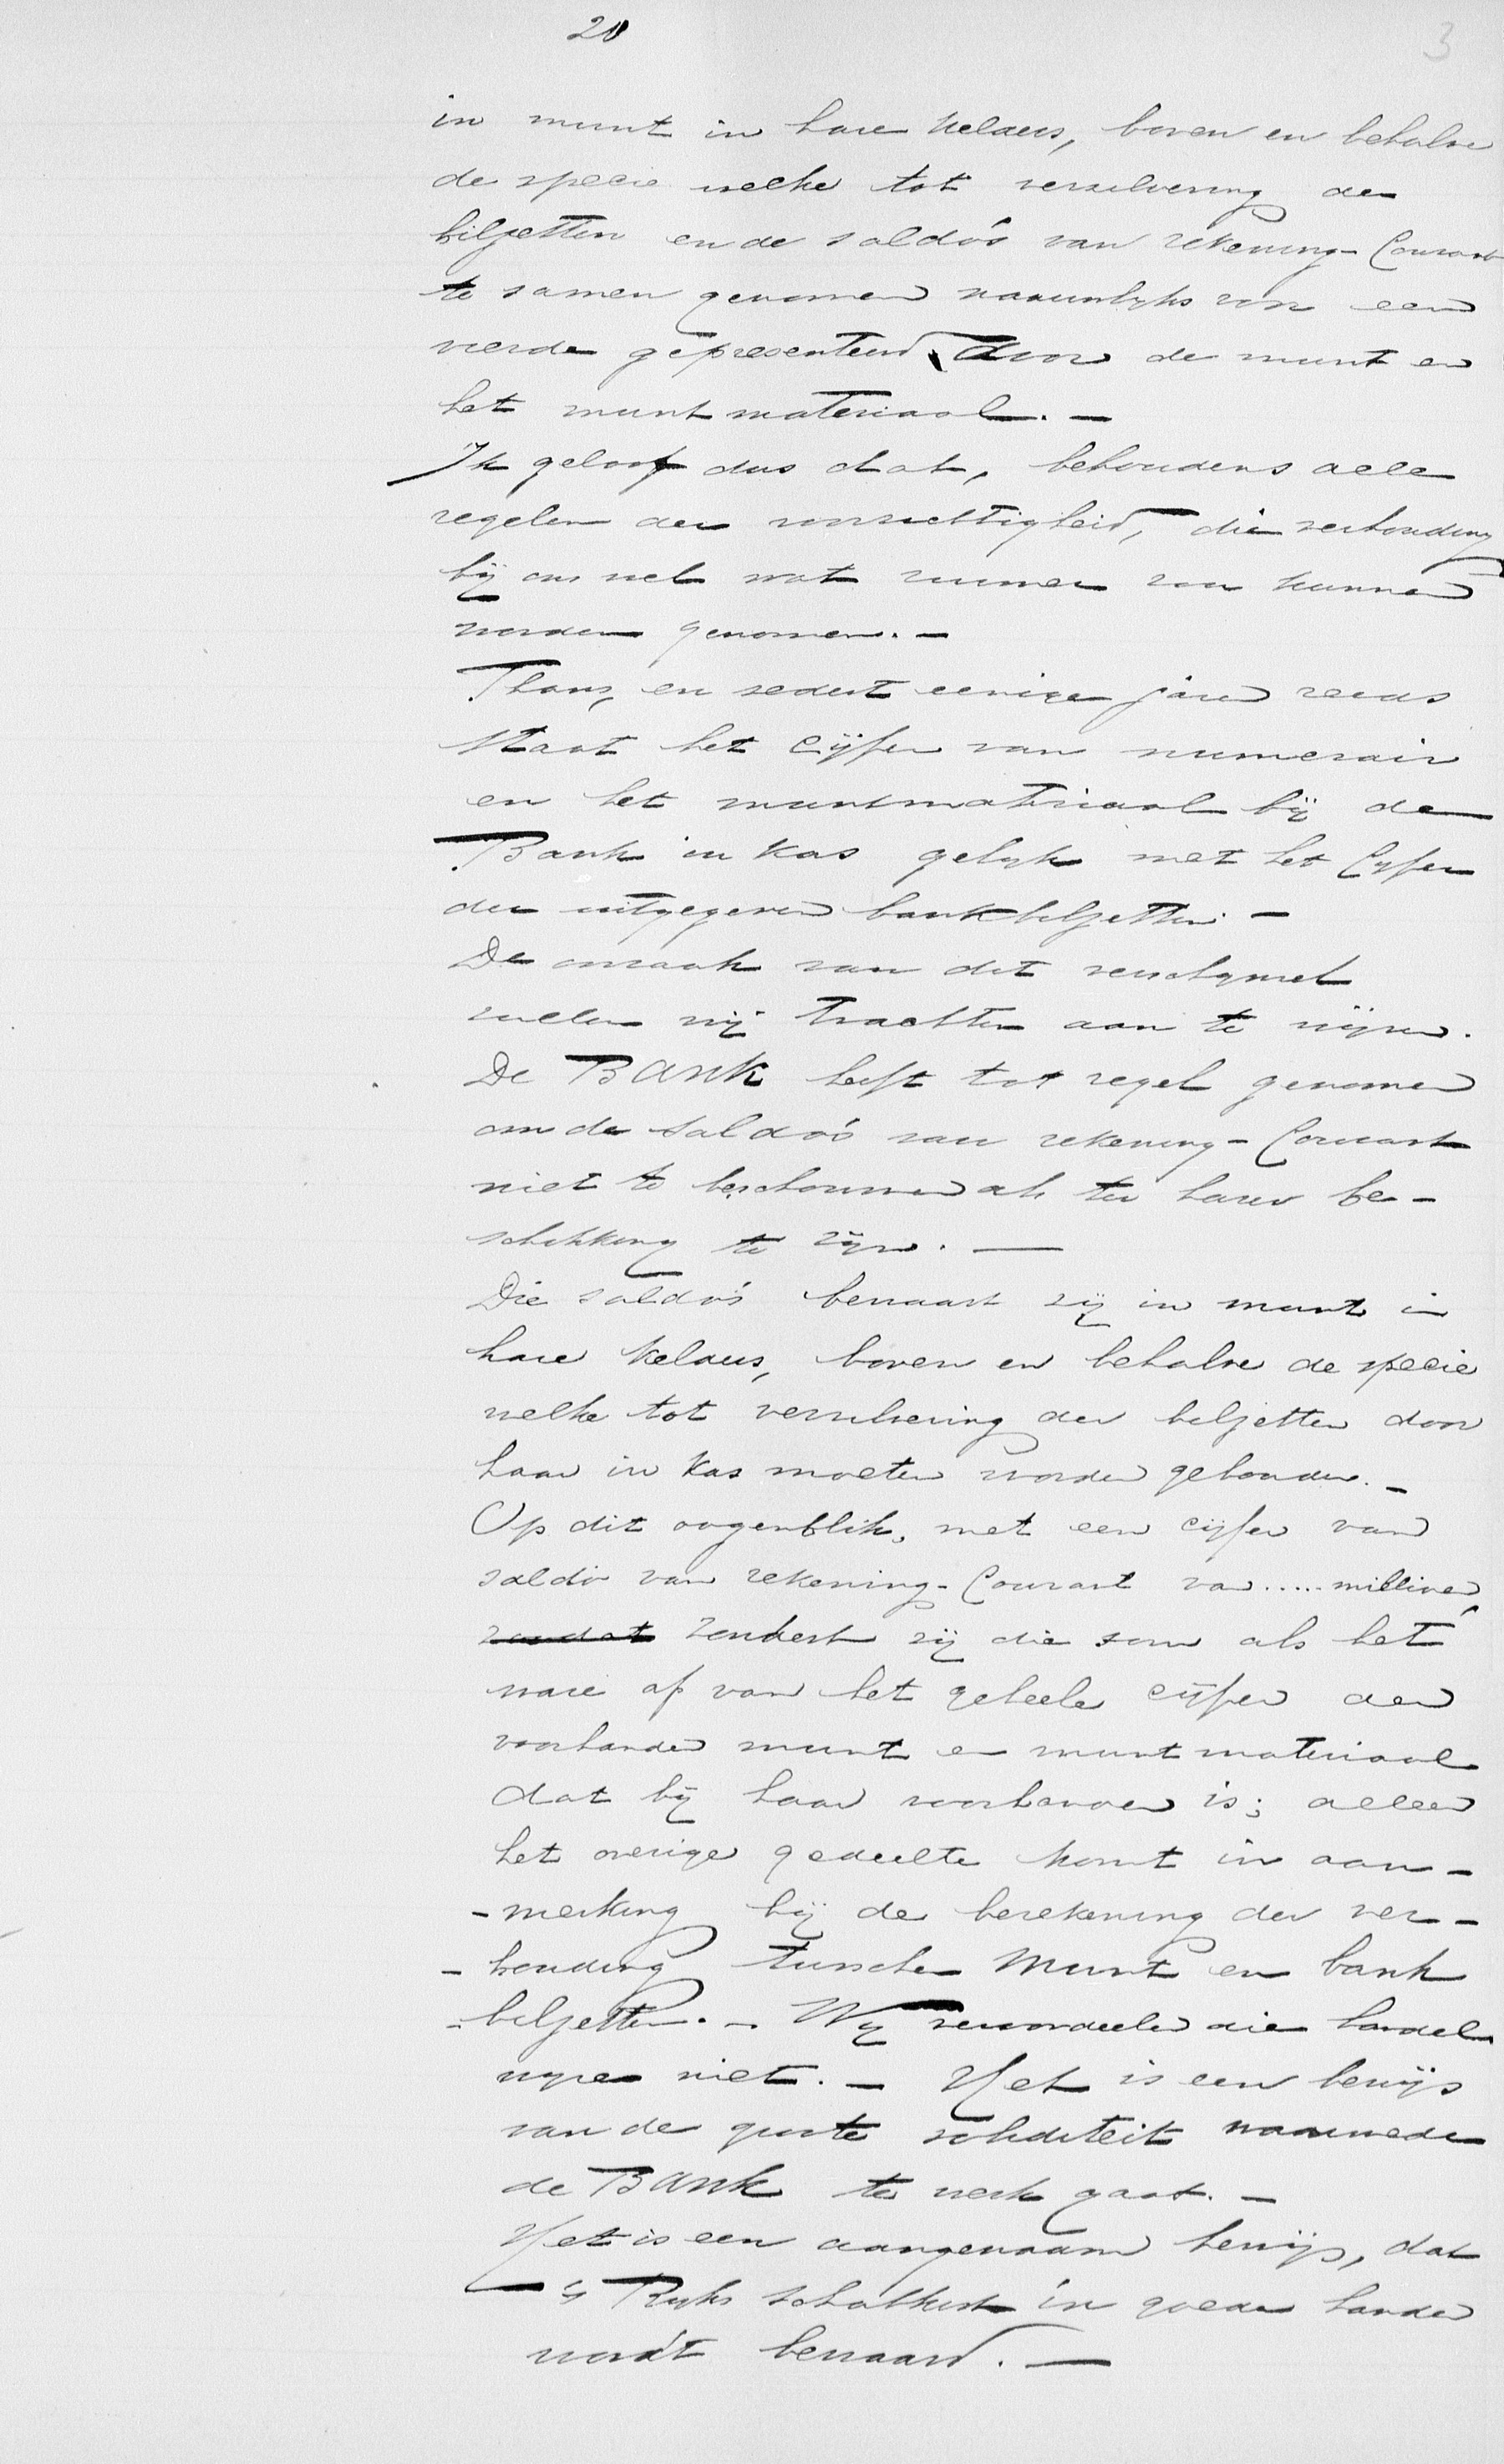 20
3
in munt in hare kelders, boven en behalve
de specie welke tot verzilvering der
biljetten en de saldo's van rekening-Courant
te samen genomen nauwlyks een
vierde gepresenteerd door de munt en
het munt materiaal. —
Ik geloof dus dat, behoudens alle
regelen der voorzichtigheid, die verhouding
bij ons wel wat ruimer zou kunnen
worden genomen. —
Thans, en sedert eenige jaren reeds
staat het cijfer van numerair
en het muntmateriaal bij de
Bank in kas gelyk met het Cyfer
der uitgegeven bankbiljetten. —
De oorzaak van dit verschynsel
zullen wij trachten aan te wijzen.
De BANK heeft tot regel genomen
om de saldo's van rekening-Courant
niet te beschouwen als ter harer be-
schikking te zijn. —
Die saldo's bewaart zij in munt in
hare kelders, boven en behalve de specie
welke tot verzilvering der biljetten door
haar in kas moeten worden gehouden. —
Op dit oogenblik, met een cijfer van
saldo van rekening-Courant van ..... millioen,
zondert zij die som als het
ware af van het geheele cijfer der
voorhanden munt en munt materiaal
dat bij haar voorhanden is; alleen
het overige gedeelte komt in aan-
-merking bij de berekening der ver-
-houding tusschen munt en bank
-biljetten. — Wij veroordeelen die handel
wyze niet. — Het is een bewijs
van de groote soliditeit waarmede
de BANK te werk gaat. —
Het is een aangenaam bewijs, dat
's Ryks schatkist in goede handen
wordt bewaard. —